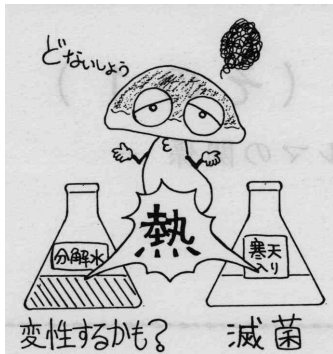 どないしよう
熱
分解水
寒天
入り
変性するかも?
滅菌